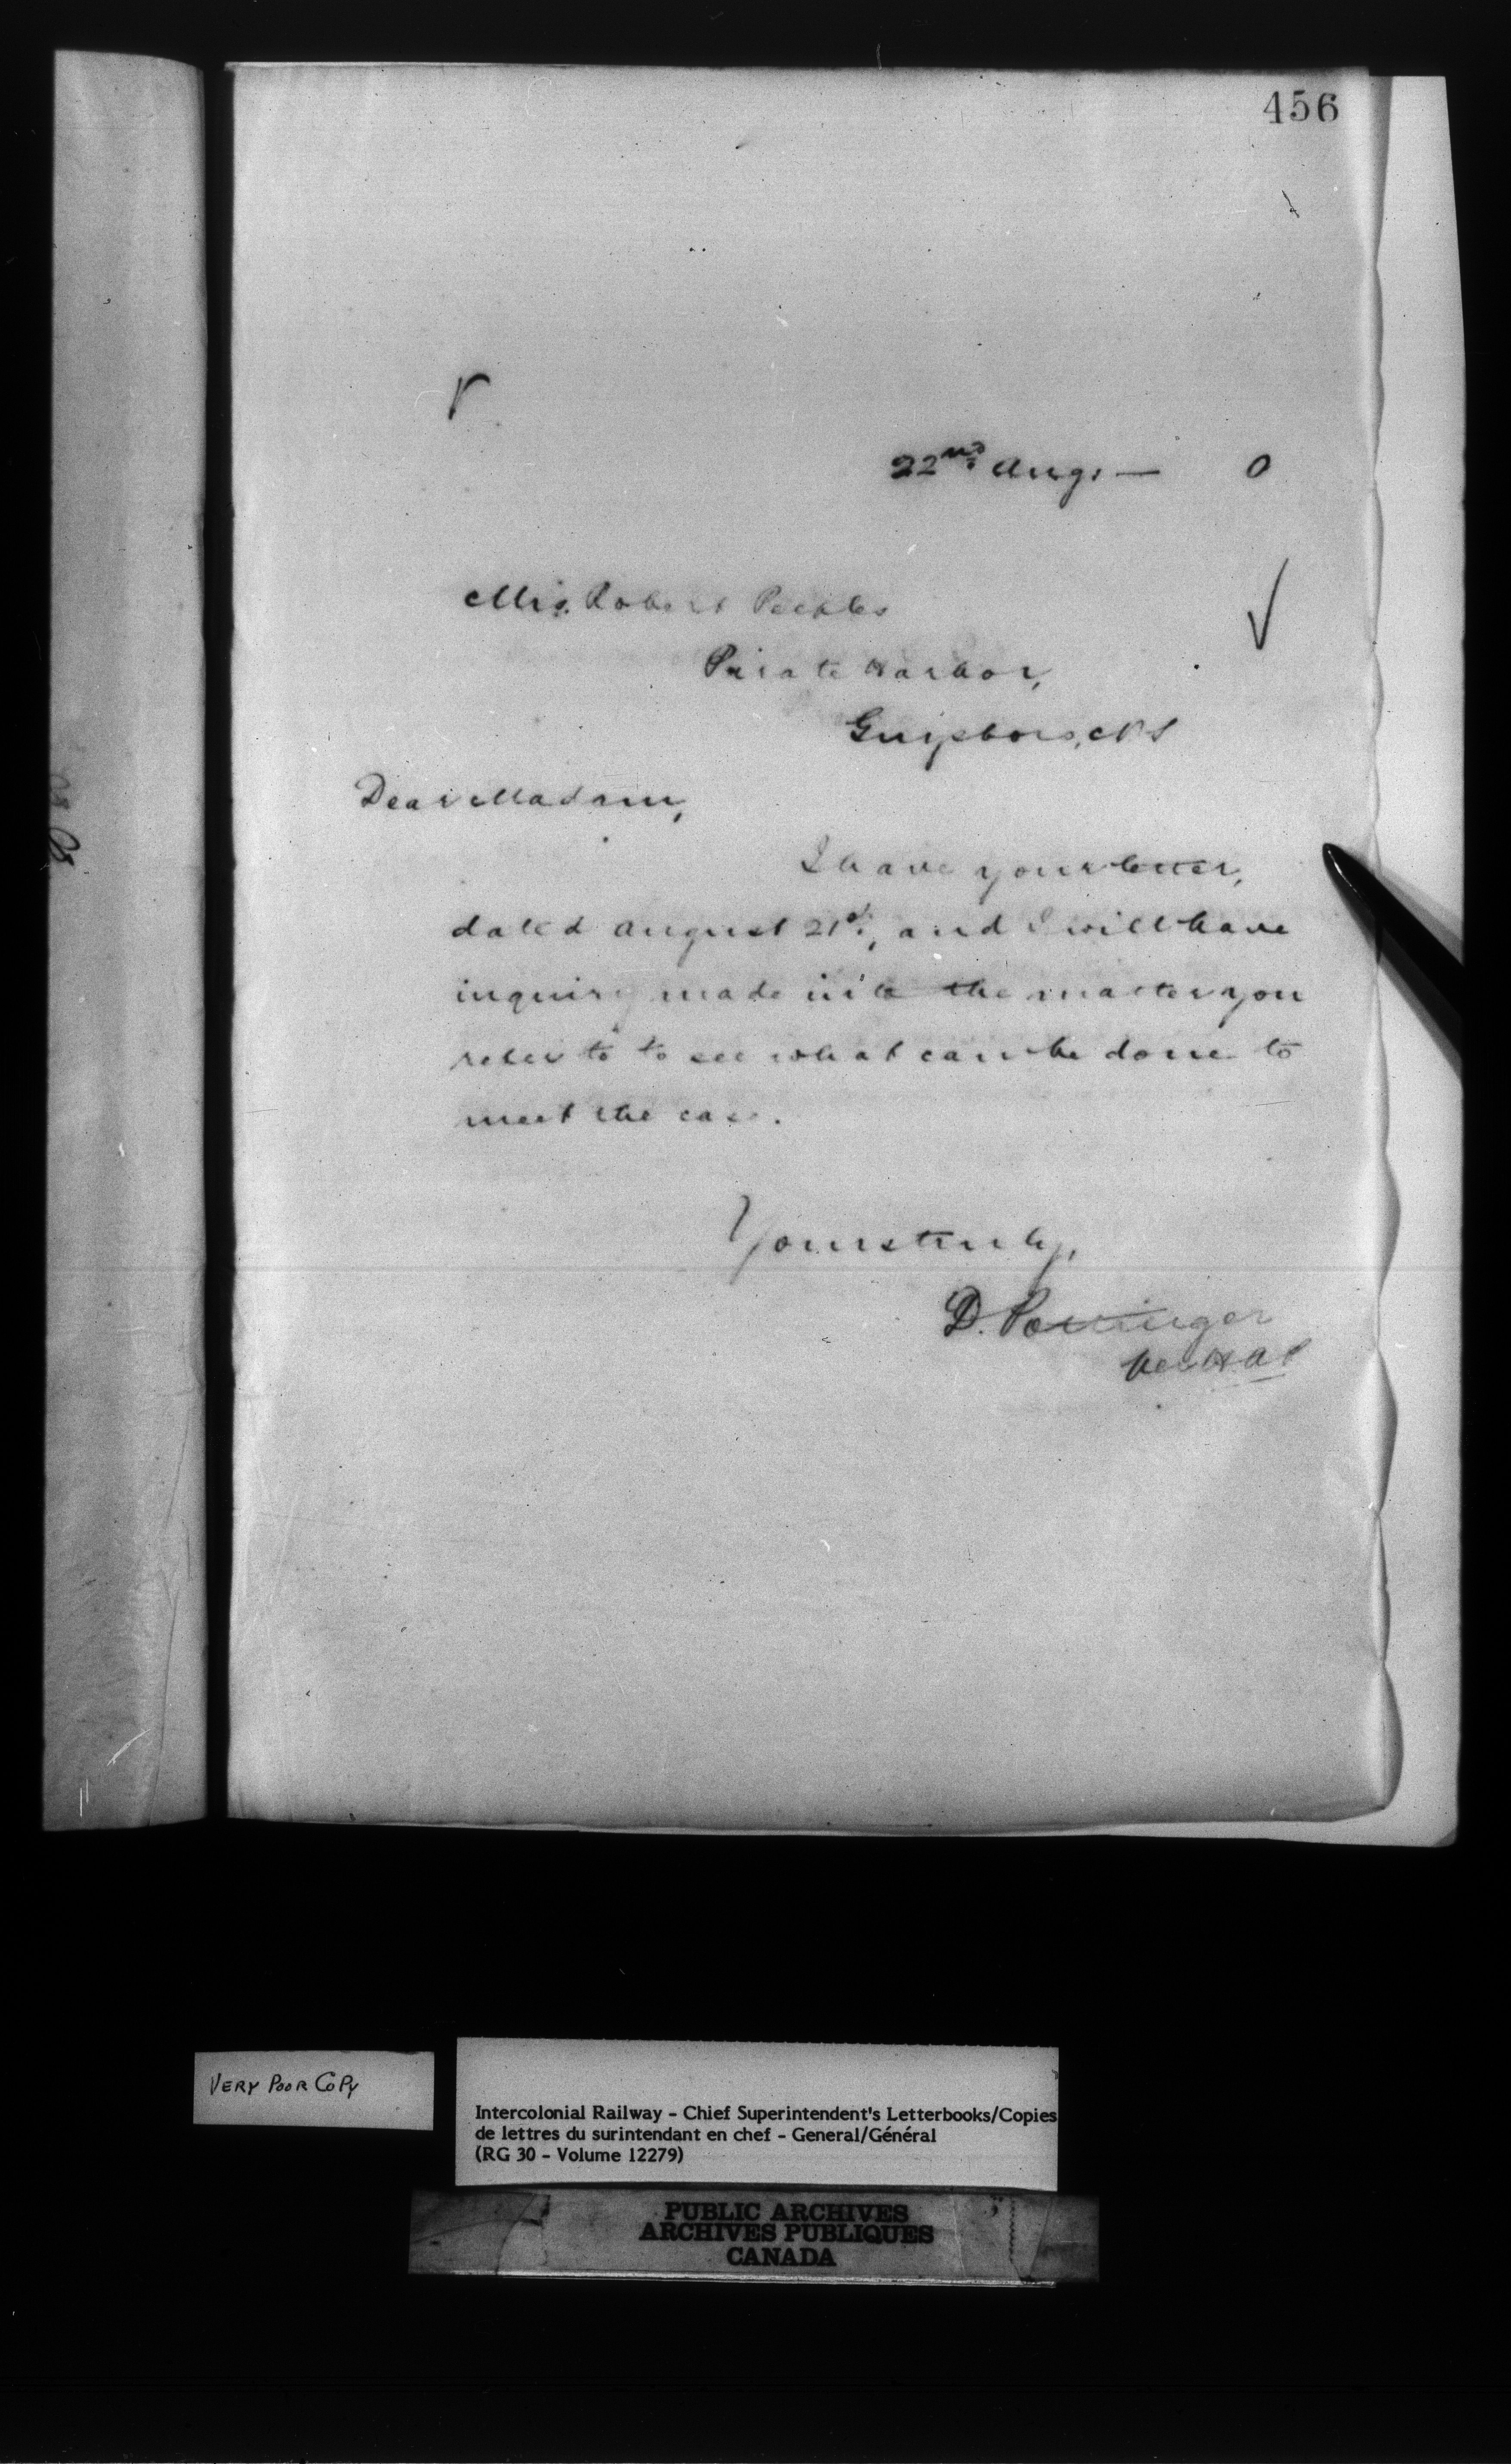 456
22nd Aug. — 0
Mrs. Robert Peebles
Pirate Harbor,
Guysboro, N S
Dear Madam,
I have your letter,
dated August 21st, and I will have
inquiry made into the matter you
refer to to see what can be done to
meet the case.
Yours truly,
D. Pottinger
VERY POOR COPY
Intercolonial Railway - Chief Superintendent's Letterbooks/Copies
de lettres du surintendant en chef - General/Général
(RG 30 - Volume 12279)
PUBLIC ARCHIVES
ARCHIVES PUBLIQUES
CANADA